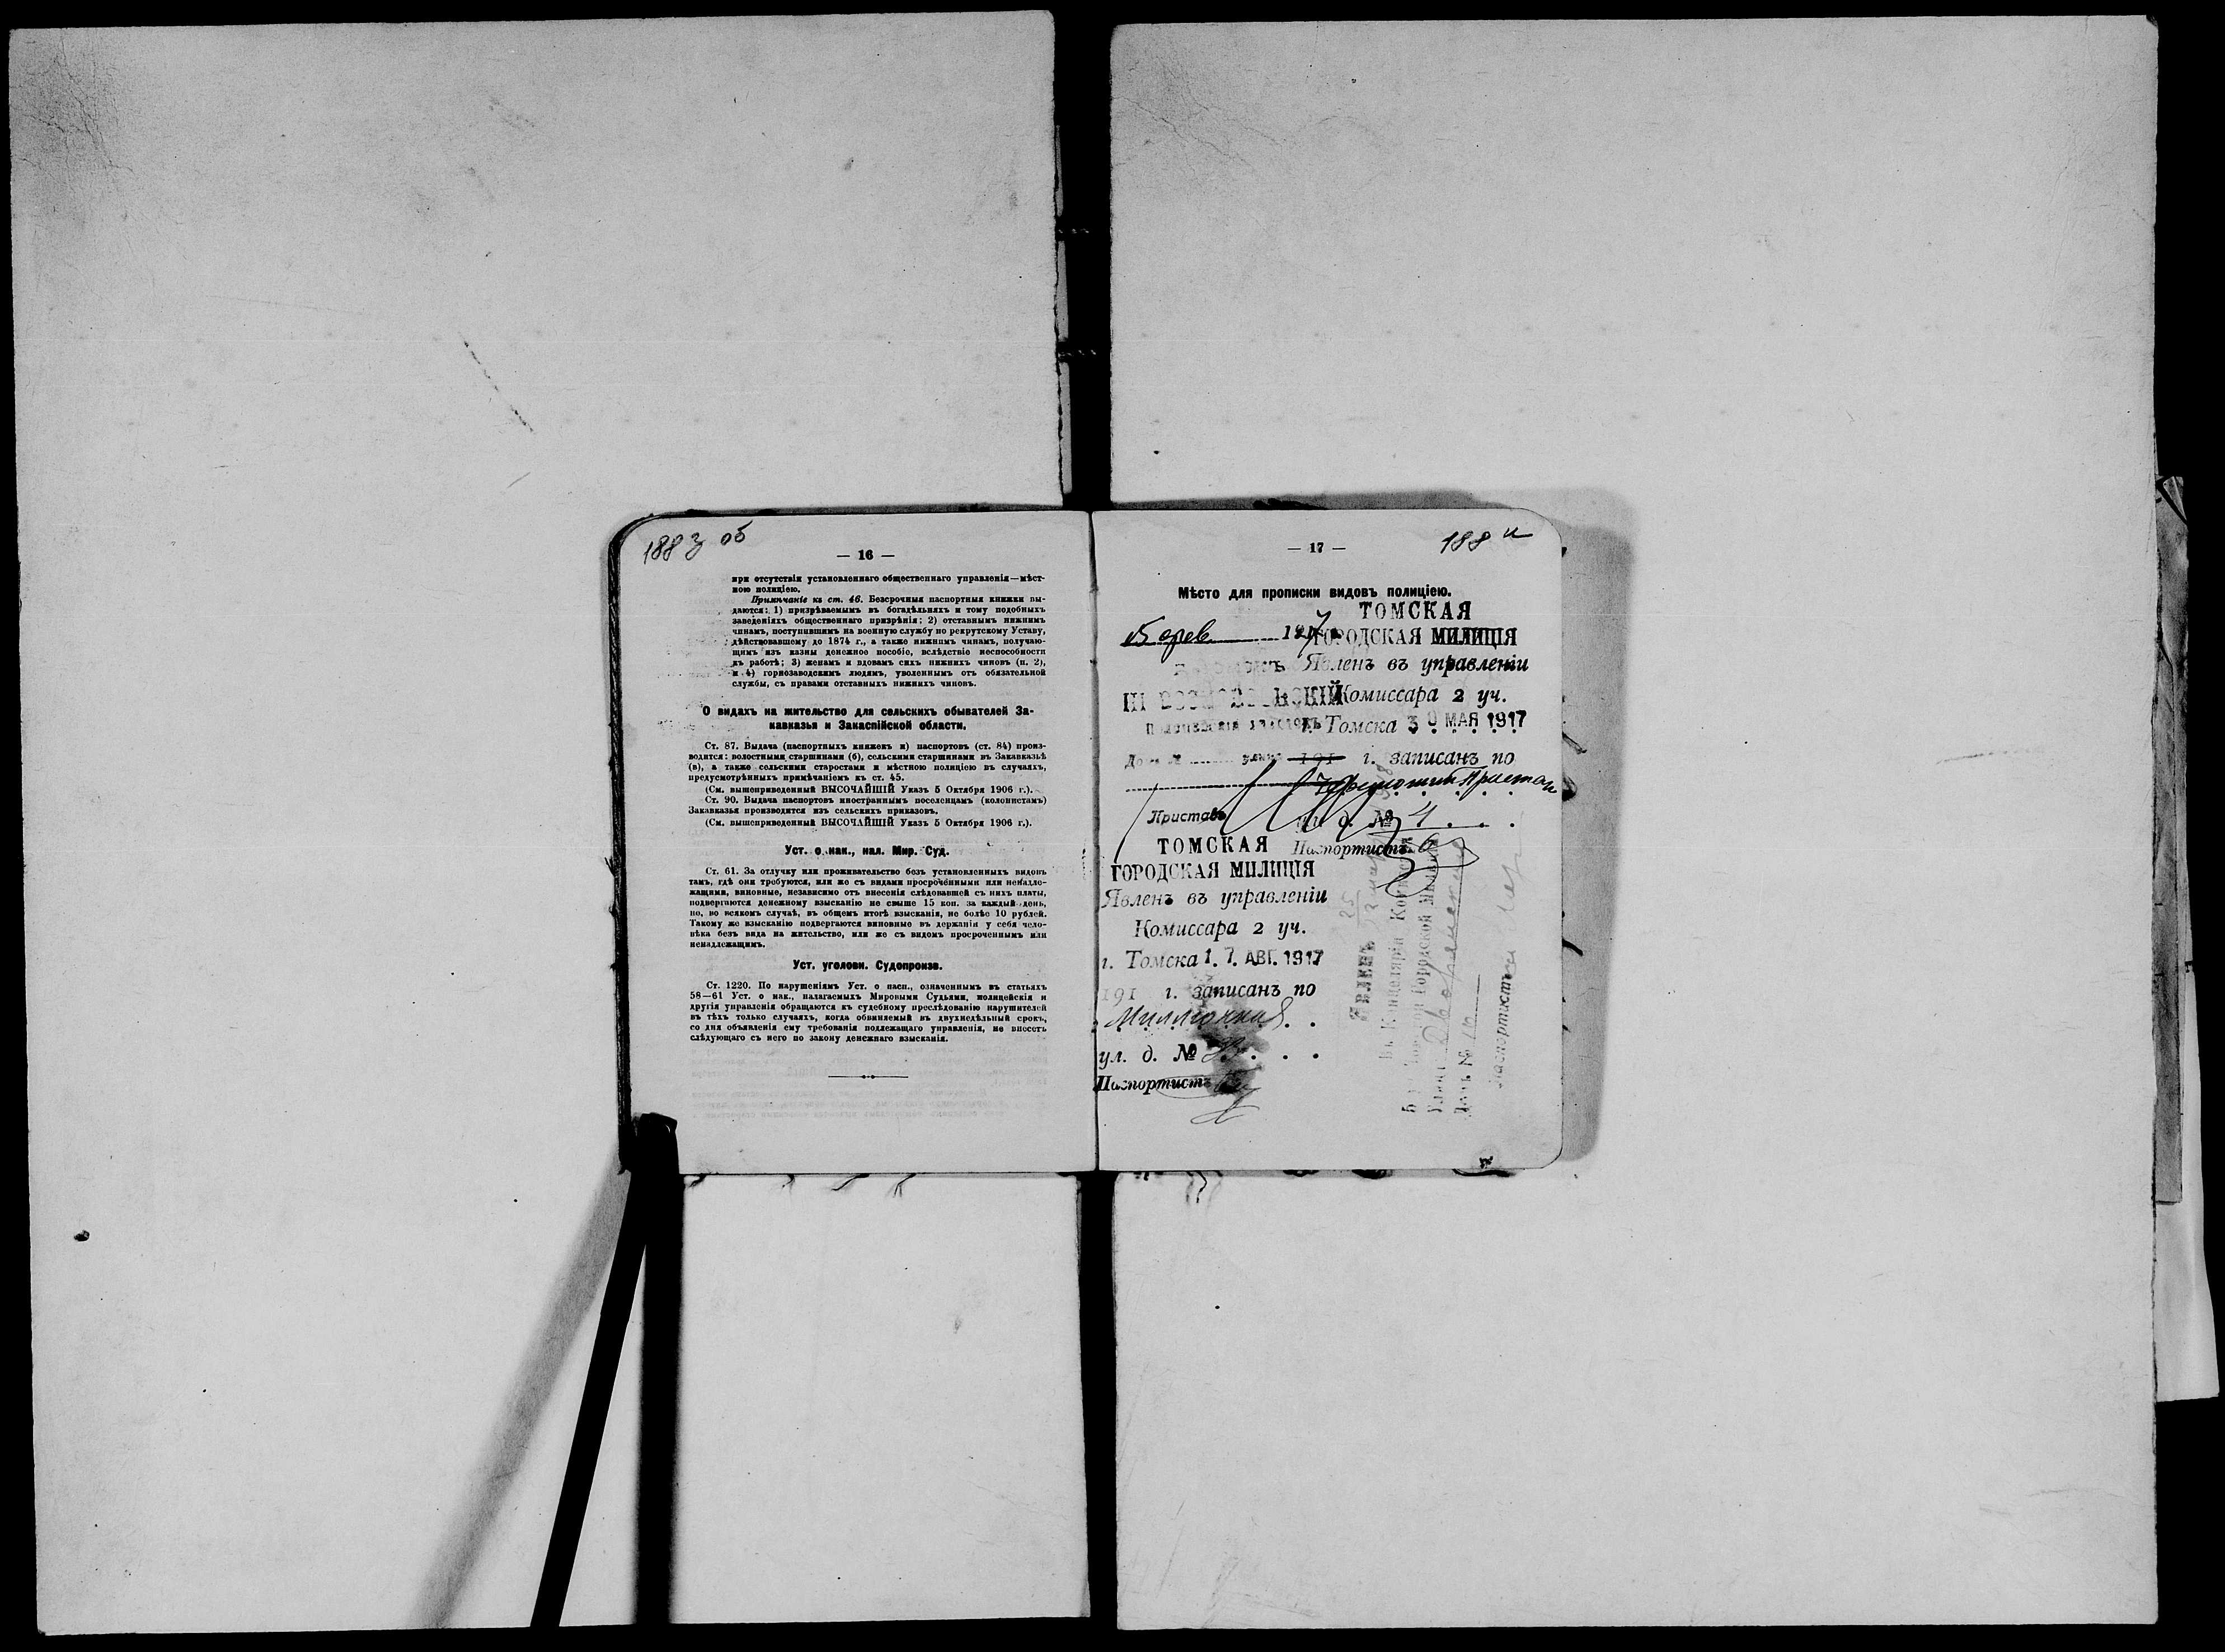 188з об
— 16 —
при отсутствіи установленнаго общественнаго управленія—мѣст-
ною полиціею.
Примѣчаніе къ ст. 46. Безсрочныя паспортныя книжки вы-
даются: 1) призрѣваемымъ въ богадѣльняхъ и тому подобныхъ
заведеніяхъ общественнаго призрѣнія; 2) отставнымъ нижнимъ
чинамъ, поступившимъ на военную службу по рекрутскому Уставу,
дѣйствовавшему до 1874 г., а также нижнимъ чинамъ, получаю-
щимъ изъ казны денежное пособіе, вслѣдствіе неспособности
къ работѣ; 3) женамъ и вдовамъ сихъ нижнихъ чиновъ (п. 2),
и 4) горнозаводскимъ людямъ, уволеннымъ отъ обязательной
службы, съ правами отставныхъ нижнихъ чиновъ.
О видахъ на жительство для сельскихъ обывателей За-
кавказья и Закаспійской области.
Ст. 87. Выдача (паспортныхъ книжекъ и) паспортовъ (ст. 84) произ-
водится: волостными старшинами (б), сельскими старшинами въ Закавказьѣ
(в), а также сельскими старостами и мѣстною полиціею въ случаяхъ,
предусмотрѣнныхъ примѣчаніемъ къ ст. 45.
(См. вышеприведенный ВЫСОЧАЙШІЙ Указъ 5 Октября 1906 г.).
Ст. 90. Выдача паспортовъ иностраннымъ поселенцамъ (колонистамъ)
Закавказья производится изъ сельскихъ приказовъ.
(См. вышеприведенный ВЫСОЧАЙШІЙ Указъ 5 Октября 1906 г.).
Уст. о нак., нал. Мир. Суд.
Ст. 61. За отлучку или проживательство безъ установленныхъ видовъ
тамъ, гдѣ они требуются, или же съ видами просроченными или ненадле-
жащими, виновные, независимо отъ внесенія слѣдовавшей съ нихъ платы,
подвергаются денежному взысканію не свыше 15 коп. за каждый день,
но, во всякомъ случаѣ, въ общемъ итогѣ взысканія, не болѣе 10 рублей.
Такому же взысканію подвергаются виновные въ держаніи у себя чело-
вѣка безъ вида на жительство, или же съ видомъ просроченнымъ или
ненадлежащимъ.
Уст. уголовн. Судопроизв.
Ст. 1220. По нарушеніямъ Уст. о пасп., означеннымъ въ статьяхъ
58—61 Уст. о нак., налагаемыхъ Мировыми Судьями, полицейскія и
другія управленія обращаются къ судебному преслѣдованію нарушителей
въ тѣхъ только случаяхъ, когда обвиняемый въ двухнедѣльный срокъ,
со дня объявленія ему требованія подлежащаго управленія, не внесетъ
слѣдующаго съ него по закону денежнаго взысканія.
188и
— 17 —
Мѣсто для прописки видовъ полиціею.
15 фев 1917
Приставъ
ТОМСКАЯ
ГОРОДСКАЯ МИЛИЦІЯ
Явленъ въ управленіи
Комиссара 2 уч.
г. Томска 30 МАЯ 1917
191 г. записанъ по
Пристан
ул. д. № 4
Паспортистъ
ТОМСКАЯ
ГОРОДСКАЯ МИЛИЦІЯ
Явленъ въ управленіи
Комиссара 2 уч.
г. Томска 17 АВГ. 1917
191 г. записанъ по
Милліонная
ул. д. №
Паспортистъ
Явленъ
Въ Канцелярію
Городской Милиціи
Домъ №
Паспортистъ